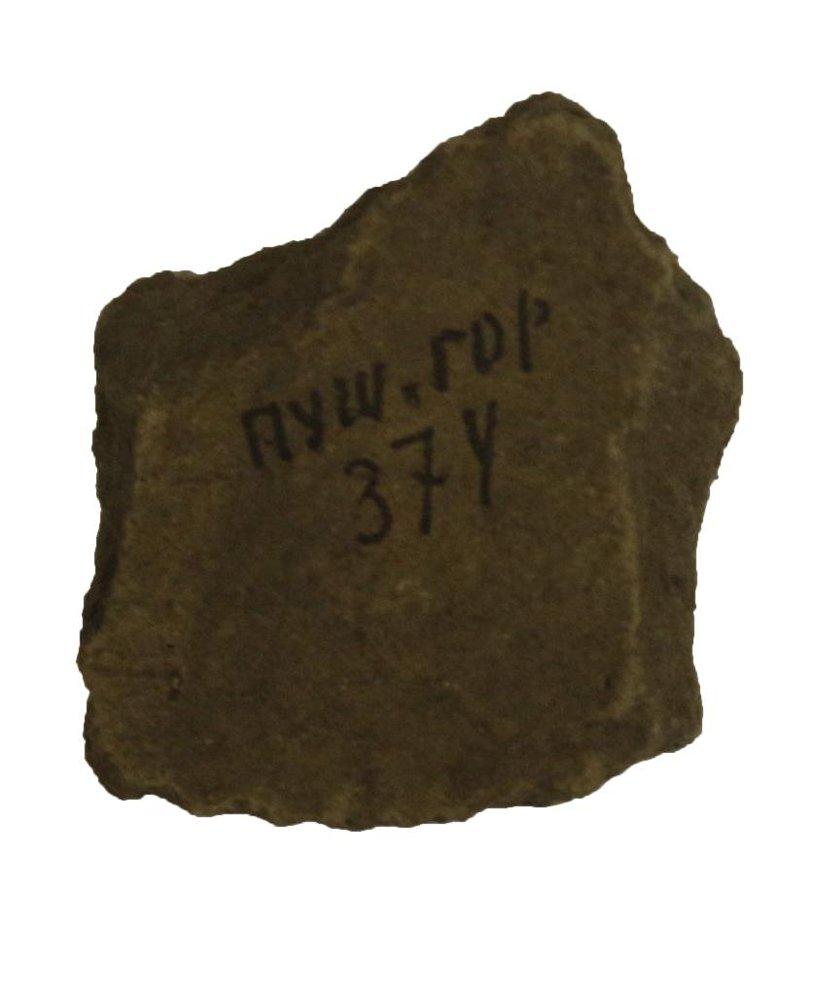 ПУШ. ГОР
374